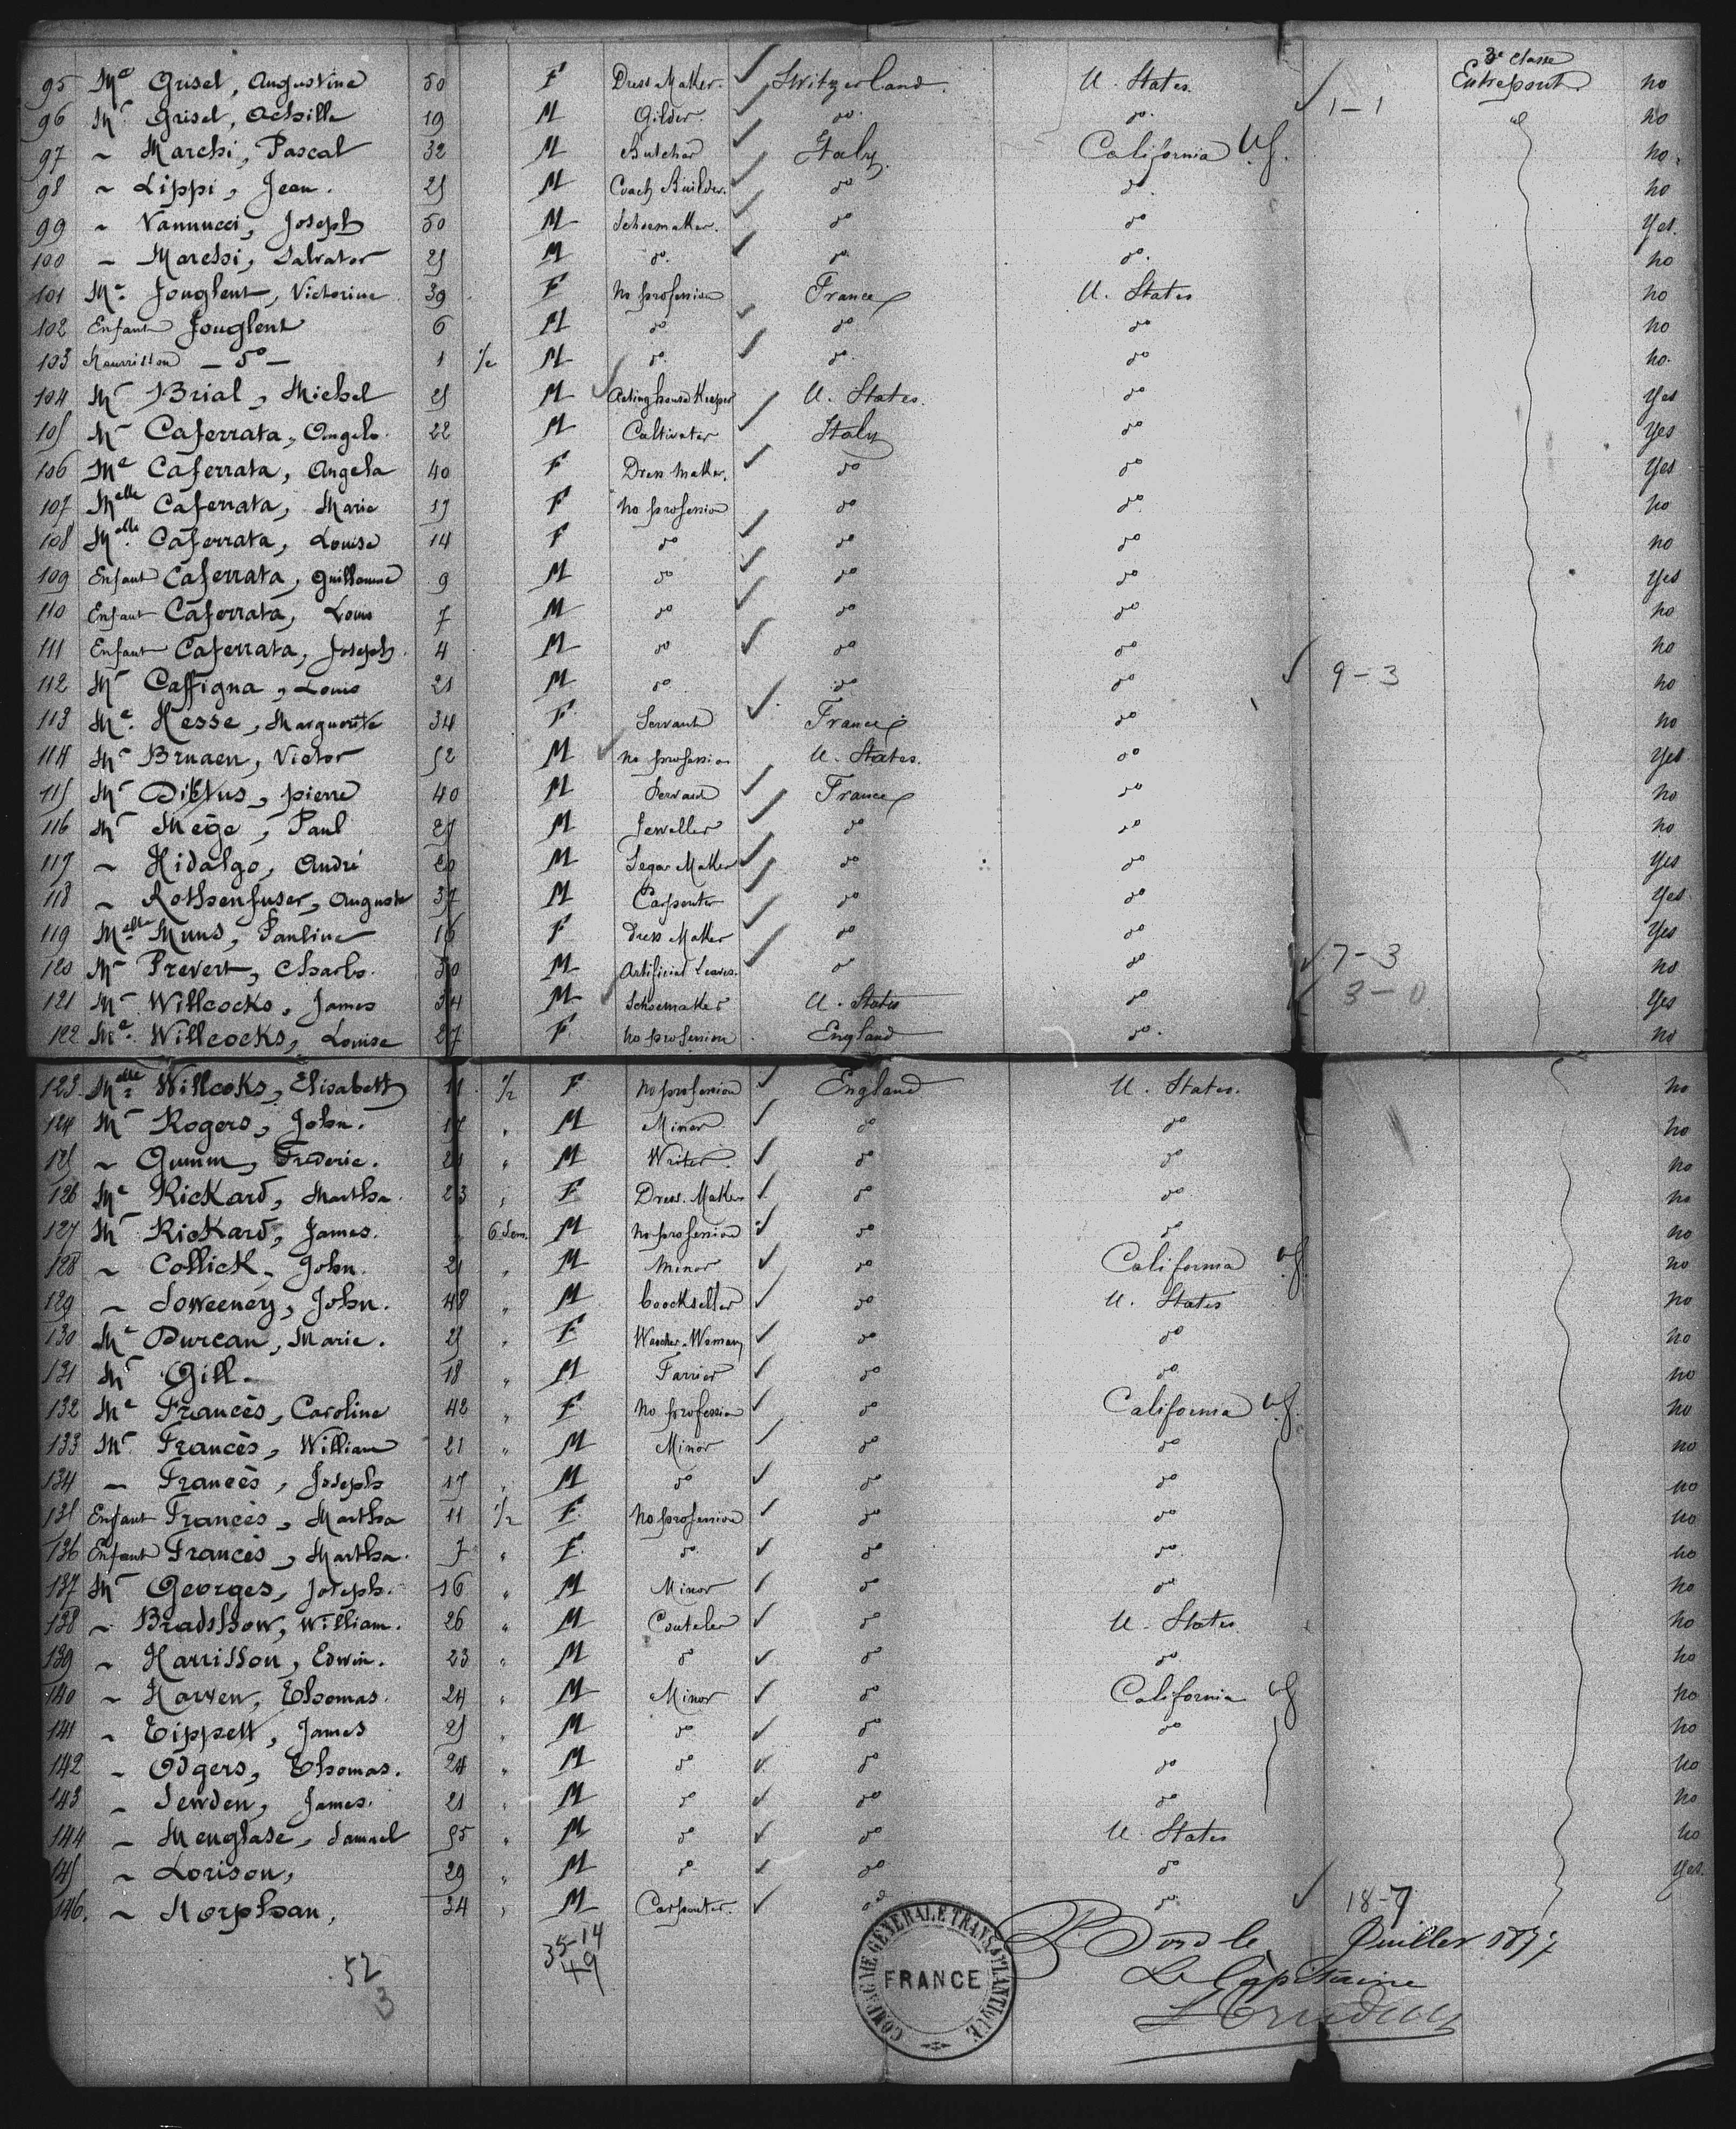 3e Classe
95 Me Grisel, Augustine 50 F Dress Maker. Switzerland. U. States. Entrepont no
96 Mr Grisel, Achille 19 M Gilder. do. do. 1-1 no
97 ~ Marchi, Pascal 32 M Butcher Italy. California no
98 ~ Lippi, Jean. 25 M Coach Builder. do do. no
99 ~ Vannucci, Joseph 50 M Schoemaker. do do Yes.
100 ~ Marchi, Salvator 25 M do. do. do. no
101 Me. Jouglent, Victorine 39 F no profession France U. States no
102 Enfant Jouglent 6 M do do do no
103 Nourrisson — do — 1 1/2 M do. do. do no.
104 Mr Brial, Michel 25 M U. States. do Yes
105 Mr Caferrata, Angelo. 22 M Cultivater Italy do Yes
106 Me Caferrata, Angela 40 F Dress maker. do do Yes
107 Melle Caferrata, Marie 17 F no profession do do no
108 Melle Caferrata, Louise 14 F do do do no
109 Enfant Caferrata, Guillaume 9 M do do do Yes
110 Enfant Caferrata, Louis 7 M do do do no
111 Enfant Caferrata, Joseph. 4 M do do do no
112 Mr Caffigna, Louis 21 M do do do 9-3 no
113 Me. Hesse, Marguerite 34 F Servant France do no
114 Mr Bruaen, Victor 52 M no profession U. States. do Yes
115 Mr Dictus, pierre 40 M Servant France do no
116 Mr Mège, Paul 27 M Jeweller do do no
117 ~ Hidalgo, André 20 M Segar Maker do do Yes
118 ~ Rothenfuser, Auguste 37 M Carpenter do do Yes
119 Melle Muns, Pauline 16 F Dress Maker do do Yes
120 Mr Prevert, Charls. 30 M Artificial Leaves. do do 7-3 no
121 Mr Willcocks, James 34 M Schoemaker U. States do 3-0 Yes
122 Me. Willcocks, Louise 27 F no profession England do. no
123 Melle Willcoks, Elisabeth 11 1/2 F no profession England U. States. no
124 Mr Rogers, John. 17 M Miner do do no
125 ~ Gumm, Frederic. 21 M Writer. do do no
126 Me Rickard, Martha. 23 F Dress. Maker do do no
127 Mr Rickard, James. 6 Sem. M no profession do do no
128 ~ Collick, John. 21 M Minor do California no
129 ~ Soweeney, John. 48 M boockseller do U. States no
130 Me Durcan, Marie. 25 F Wascher. Woman do do no
131 Mr Gill. 18 M Farrier do do no
132 Me Francès, Caroline 42 F no profession do California no
133 Mr. Francès, William 21 M Minor do do no
134 ~ Francès, Joseph 17 M do do do no
135 Enfant Francès, Martha 11 1/2 F no profession do do no
136 Enfant Francès, Martha. 7 F do. do do. no
137 Mr Georges, Joseph. 16 M Minor do do no
138 ~ Bradshow, William. 26 M Couteler do U. States no
139 ~ Harrisson, Edwin. 23 M do do do no
140 ~ Harven, Thomas. 24 M Minor do California no
141 ~ Tippett, James 25 M do do do no
142 ~ Odgers, Thomas. 24 M do do do no
143 ~ Sewden, James. 21 M do do do no
144 ~ Menglase, Samuel 35 M do do U. States no
145 ~ Lorison, 29 M do do do Yes.
146. ~ Morphan, 34 M Carpenter. do do. 18-7
35-14
49
52
3
COMPAGNIE GENERALE TRANSATLANTIQUE
FRANCE
Bord le Juillet 1877
Le Capitaine